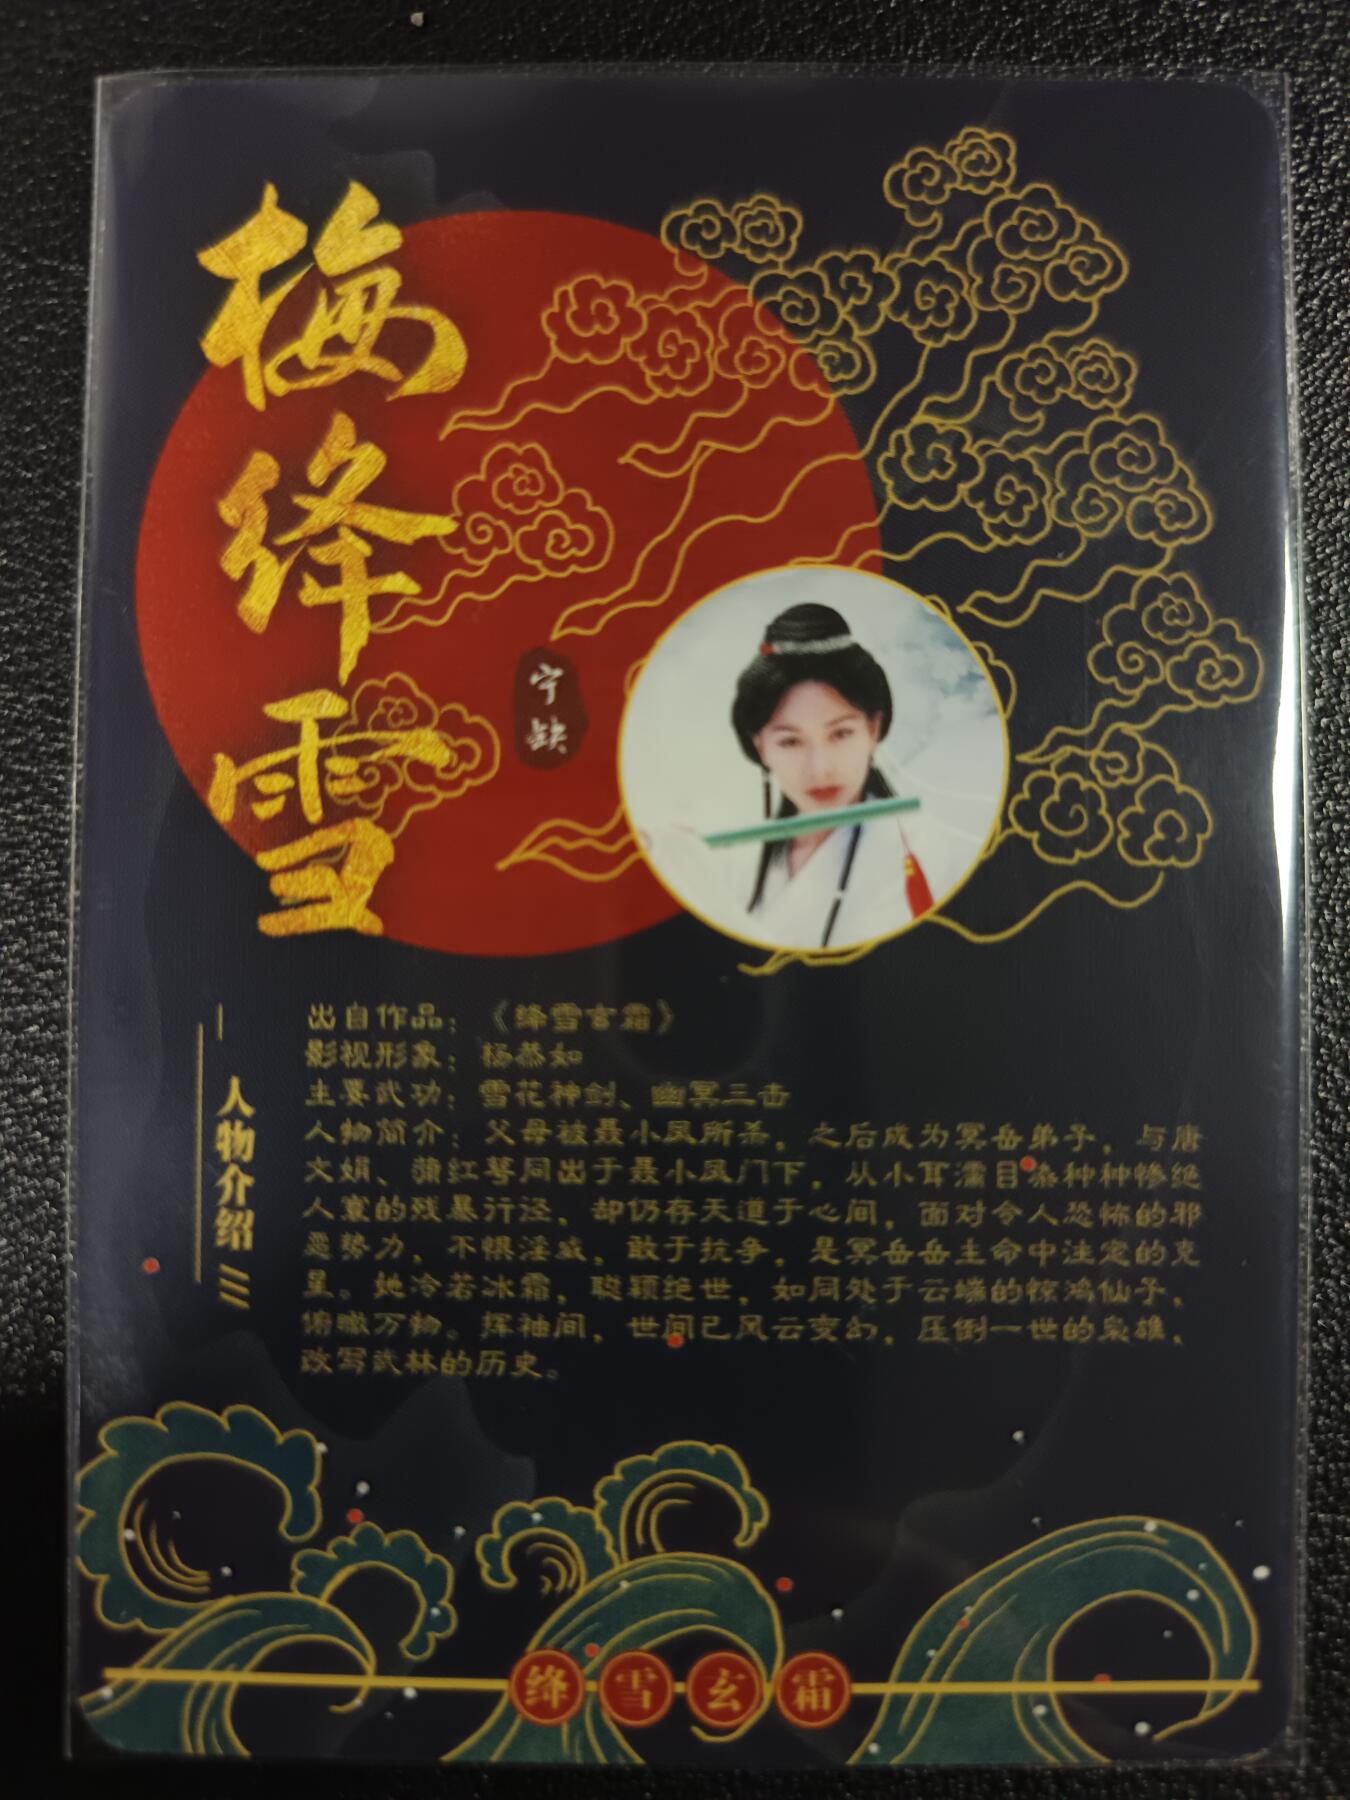 梅绛雪
宁缺
人物介绍
出自作品：《绛雪玄霜》
影视形象：杨恭如
主要武功：雪花神剑、幽冥三击
人物简介：父母被聂小凤所杀，之后成为冥岳弟子，与唐
文娟、蒲红萼同出于聂小凤门下，从小耳濡目染种种惨绝
人寰的残暴行径，却仍存天道于心间，面对令人恐怖的邪
恶势力，不惧淫威，敢于抗争，是冥岳岳主命中注定的克
星。她冷若冰霜，聪颖绝世，如同处于云端的惊鸿仙子，
俯瞰万物。挥袖间，世间已风云变幻，压倒一世的枭雄，
改写武林的历史。
绛雪玄霜